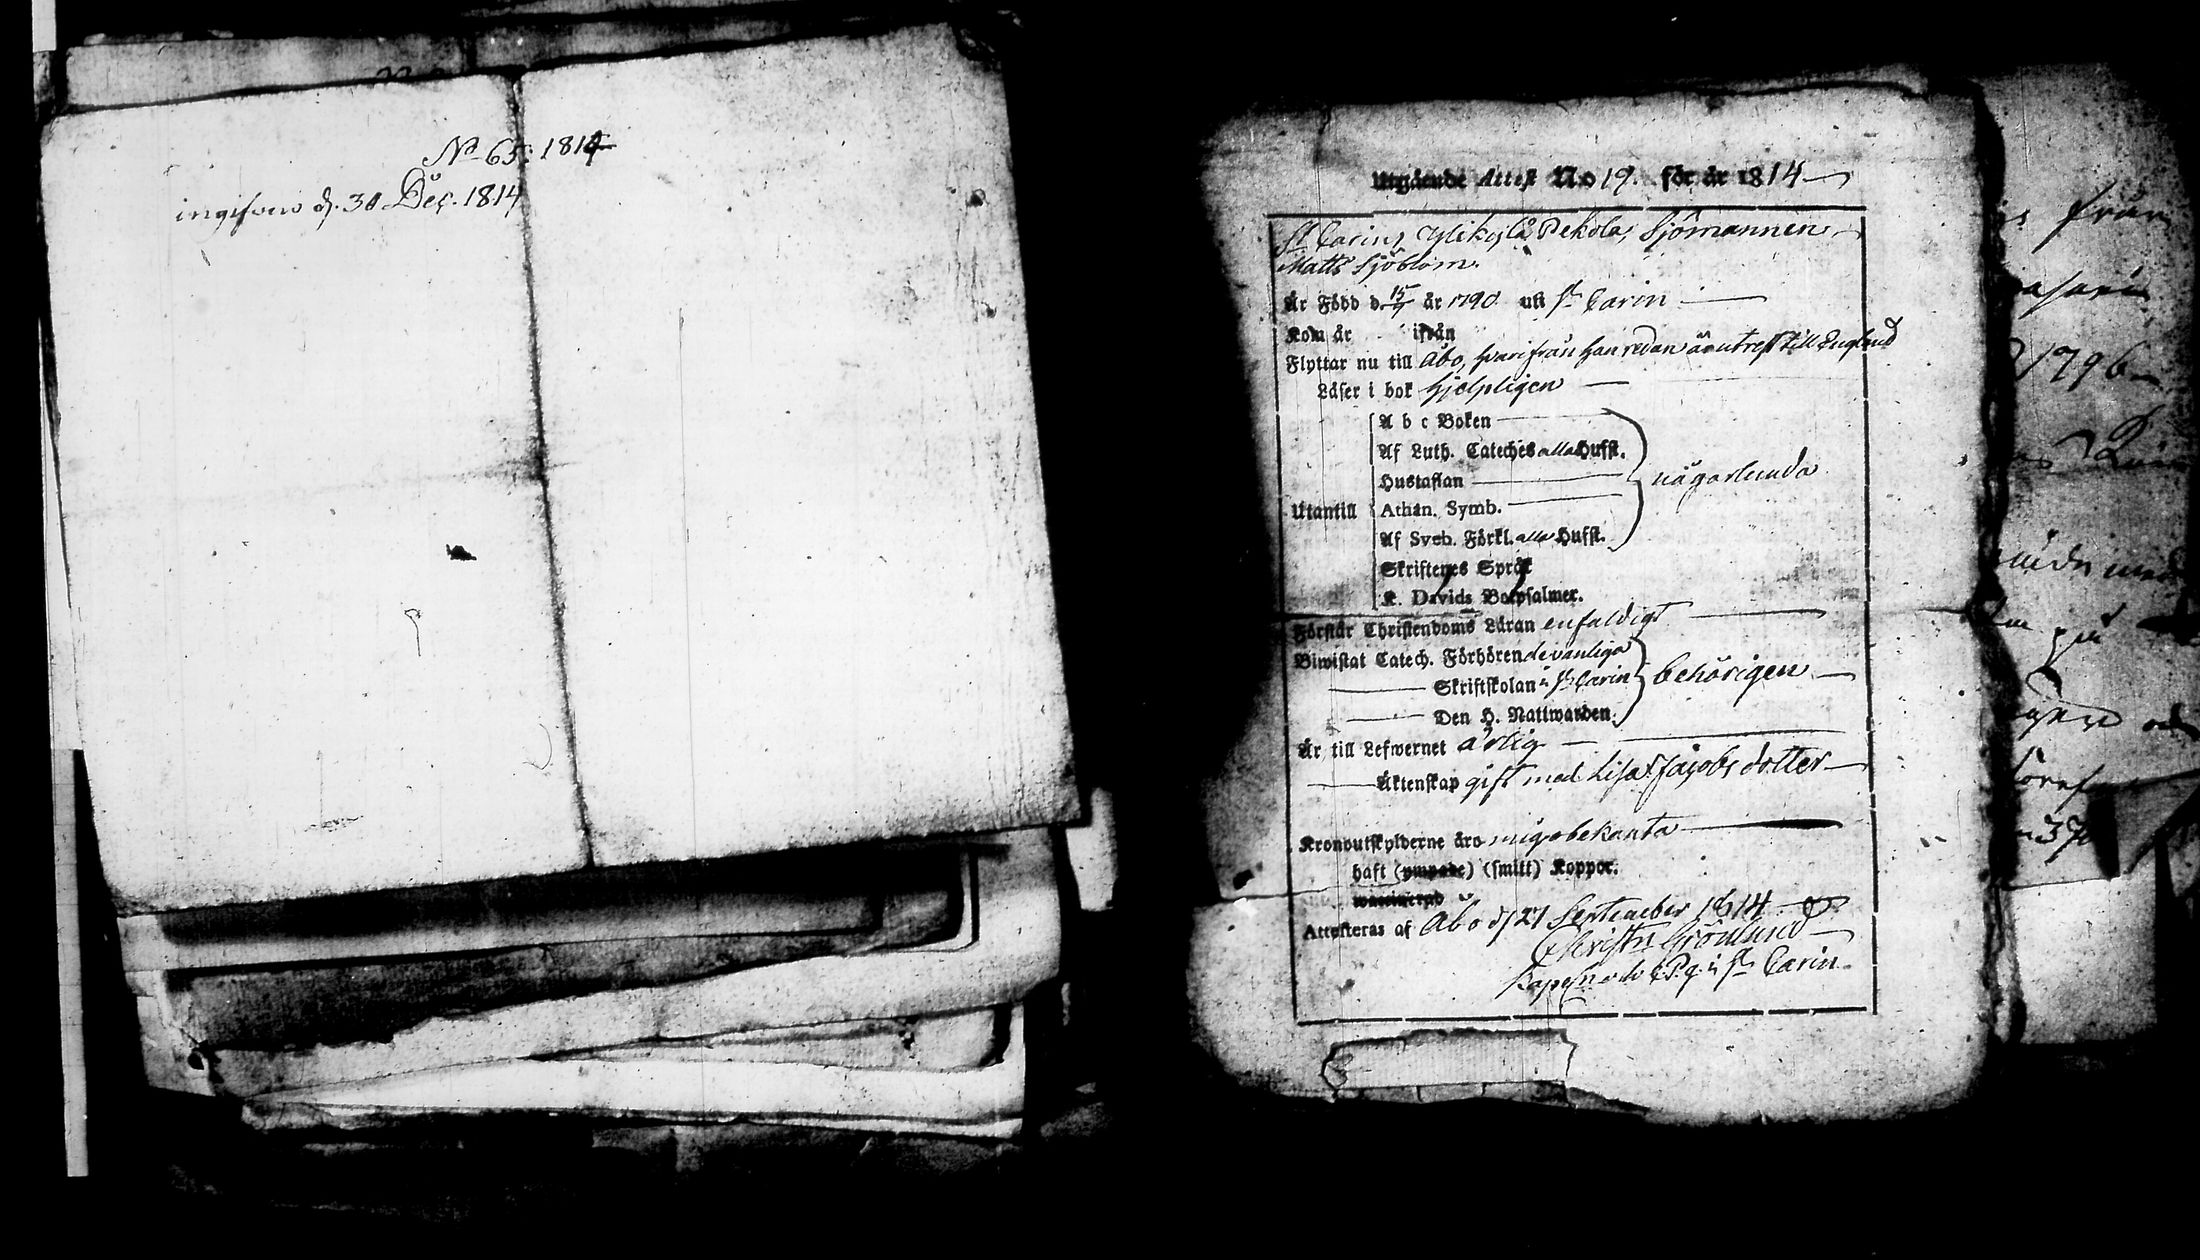 No 65. 1814
ingifwen d. 30 Dec. 1814
Utgående Attest No 19. för år 1814
St Carins, Ylikylä, Pekola, Sjömannen
Matts Sjöblom.
Är Född d. 15/7 år 1790. uti St Carin
Kom år ifrån
Flyttar nu till Åbo, hvarifrån han redan är utrest till England
Läser i bok hjelpligen
A b c Boken
Af Luth. Cateches alla Hufst.
Hustaflan
någorlunda
Utantill Athan. Symb.
Af Sveb. Förkl. alla Hufst.
Skriftenes Språk
K. Davids Botpsalmer.
Förstår Christendoms Läran enfaldigt
Biwistat Catech. Förhören de vanliga
Skriftskolan i St Carin behörigen
Den H. Nattwarden.
Är till Lefwernet ärlig
Äktenskap gift med Lisa Jacobsdotter
Kronoutskylderne äro mig obekanta
haft (ympade) (smitt) Koppor.
waccinerad
Attesteras af Åbo d 27 September 1814
Christn Grönlund
Kapellan o. v. P. g. i St Carin
från
1796
på